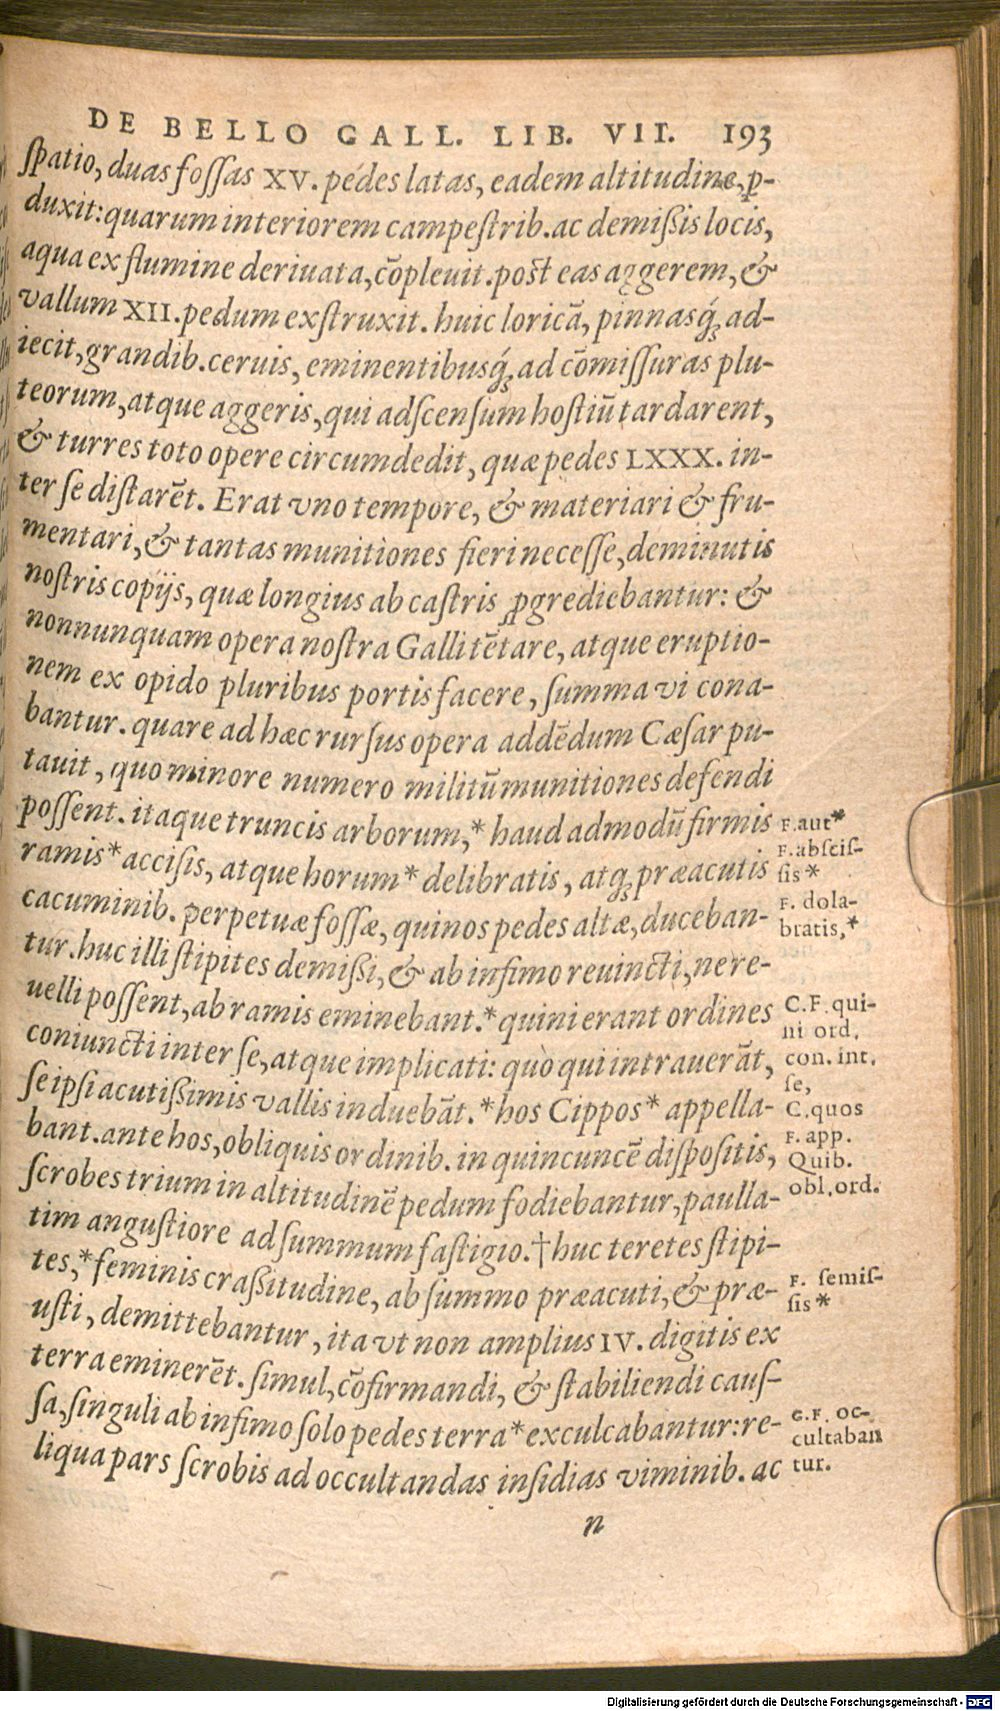 DE BELLO GALL. LIB. VII. 193
ſpatio, duas foſſas XV. pedes latas, eadem altitudine, ꝓ-
duxit: quarum interiorem campeſtrib. ac demißis locis,
aqua ex flumine deriuata, cōpleuit. post eas aggerem, &
vallum XII. pedum exſtruxit. huic loricā, pinnasq́; ad-
iecit, grandib. ceruis, eminentibusq́; ad cōmiſſuras plu-
teorum, atque aggeris, qui adſcenſum hoſtiū tardarent,
& turres toto opere circumdedit, quæ pedes LXXX. in-
ter ſe diſtarēt. Erat vno tempore, & materiari & fru-
mentari, & tantas munitiones fieri neceſſe, deminutis
noſtris copijs, quæ longius ab caſtris ꝓgrediebantur: &
nonnunquam opera noſtra Galli tētare, atque eruptio-
nem ex opido pluribus portis facere, ſumma vi cona-
bantur. quare ad hæc rurſus opera addēdum Cæſar pu-
tauit, quo minore numero militū munitiones defendi
poſſent. itaque truncis arborum,* haud admodū firmis
ramis* acciſis, atque horum* delibratis, atq; præacutis
cacuminib. perpetuæ foſſæ, quinos pedes altæ, duceban-
tur. huc illi ſtipites demißi, & ab infimo reuincti, ne re-
uelli poſſent, ab ramis eminebant.* quini erant ordines
coniuncti inter ſe, atque implicati: quò qui intrauerāt,
ſe ipſi acutißimis vallis induebāt.* hos Cippos* appella-
bant. ante hos, obliquis ordinib. in quincuncē diſpoſitis,
ſcrobes trium in altitudinē pedum fodiebantur, paulla-
tim anguſtiore ad ſummum faſtigio.† huc teretes ſtipi-
tes,* feminis craßitudine, ab ſummo præacuti, & præ-
uſti, demittebantur, ita vt non amplius IV. digitis ex
terra eminerēt. ſimul, cōfirmandi, & ſtabiliendi cauſ-
ſa, ſinguli ab infimo ſolo pedes terra* exculcabantur: re-
liqua pars ſcrobis ad occultandas inſidias viminib. ac
n
F. aut*
F. abſciſ-
ſis*
F. dola-
bratis,*
C. F. qui-
ni ord.
con. int.
ſe,
C. quos
F. app.
Quib.
obl. ord.
F. ſemiſ-
ſis*
G. F. oc-
cultaban
tur.
Digitalisierung gefördert durch die Deutsche Forschungsgemeinschaft - DFG